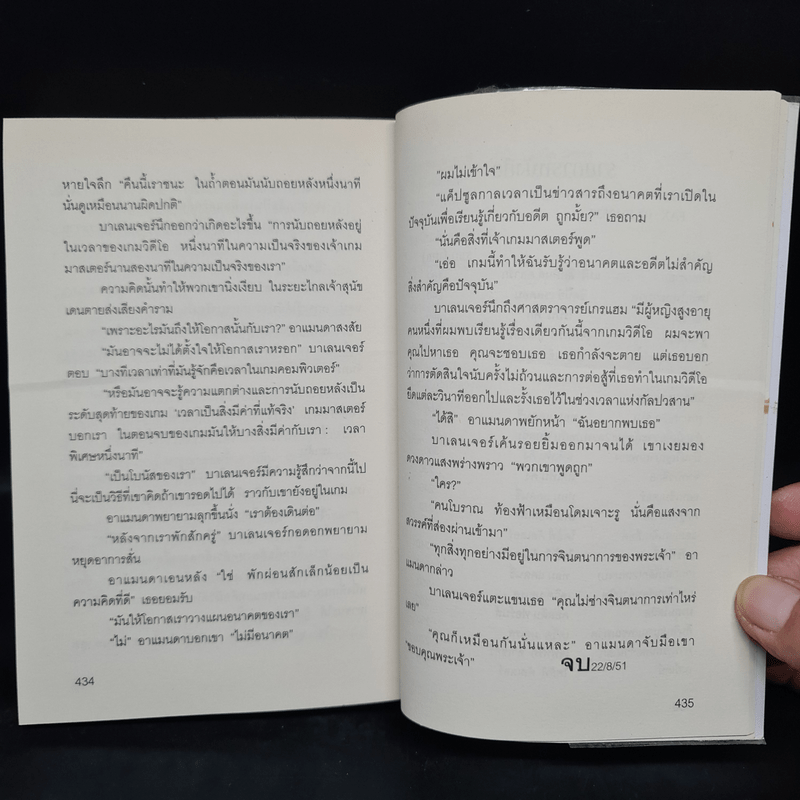 หายใจลึก “คืนนี้เราชนะ ในถ้ำตอนมันนับถอยหลังหนึ่งนาที
นั่นดูเหมือนนานผิดปกติ”
บาเลนเจอร์นึกออกว่าเกิดอะไรขึ้น “การนับถอยหลังอยู่
ในเวลาของเกมวิดีโอ หนึ่งนาทีในความเป็นจริงของเจ้าเกม
มาสเตอร์นานสองนาทีในความเป็นจริงของเรา”
ความคิดนั้นทำให้พวกเขานิ่งเงียบ ในระยะไกลเจ้าสุนัข
เดนตายส่งเสียงคำราม
“เพราะอะไรมันถึงให้โอกาสนั้นกับเรา?” อาแมนดาสงสัย
“มันอาจจะไม่ได้ตั้งใจให้โอกาสเราหรอก” บาเลนเจอร์
ตอบ “บางทีเวลาเท่าที่มันรู้จักคือเวลาในเกมคอมพิวเตอร์”
“หรือมันอาจจะรู้ความแตกต่างและการนับถอยหลังเป็น
ระดับสุดท้ายของเกม ‘เวลาเป็นสิ่งมีค่าที่แท้จริง’ เกมมาสเตอร์
บอกเรา ในตอนจบของเกมมันให้บางสิ่งมีค่ากับเรา : เวลา
พิเศษหนึ่งนาที”
“เป็นโบนัสของเรา” บาเลนเจอร์มีความรู้สึกว่าจากนี้ไป
นี่จะเป็นวิธีที่เขาคิดถ้าเขารอดไปได้ ราวกับเขายังอยู่ในเกม
อาแมนดาพยายามลุกขึ้นนั่ง “เราต้องเดินต่อ”
“หลังจากเราพักสักครู่” บาเลนเจอร์กอดอกพยายาม
หยุดอาการสั่น
อาแมนดาเอนหลัง “ใช่ พักผ่อนสักเล็กน้อยเป็น
ความคิดที่ดี” เธอยอมรับ
“มันให้โอกาสเราวางแผนอนาคตของเรา”
“ไม่” อาแมนดาบอกเขา “ไม่มีอนาคต”
434
“ผมไม่เข้าใจ”
“แค็ปซูลกาลเวลาเป็นข่าวสารถึงอนาคตที่เราเปิดใน
ปัจจุบันเพื่อเรียนรู้เกี่ยวกับอดีต ถูกมั้ย?” เธอถาม
“นั่นคือสิ่งที่เจ้าเกมมาสเตอร์พูด”
“เอ่อ เกมนี้ทำให้ฉันรับรู้ว่าอนาคตและอดีตไม่สำคัญ
สิ่งสำคัญคือปัจจุบัน”
บาเลนเจอร์นึกถึงศาสตราจารย์เกรแฮม “มีผู้หญิงสูงอายุ
คนหนึ่งที่ผมพบเรียนรู้เรื่องเดียวกันนี้จากเกมวิดีโอ ผมจะพา
คุณไปหาเธอ คุณจะชอบเธอ เธอกำลังจะตาย แต่เธอบอก
ว่าการตัดสินใจนับครั้งไม่ถ้วนและการต่อสู้ที่เธอทำในเกมวิดีโอ
ยืดแต่ละวินาทีออกไปและรั้งเธอไว้ในช่วงเวลาแห่งกัลปวสาน”
“ได้สิ” อาแมนดาพยักหน้า “ฉันอยากพบเธอ”
บาเลนเจอร์เค้นรอยยิ้มออกมาจนได้ เขาเงยมอง
ดวงดาวแสงพร่างพราว “พวกเขาพูดถูก”
“ใคร?”
“คนโบราณ ท้องฟ้าเหมือนโดมเจาะรู นั่นคือแสงจาก
สวรรค์ที่ส่องผ่านเข้ามา”
“ทุกสิ่งทุกอย่างมีอยู่ในการจินตนาการของพระเจ้า” อา
แมนดากล่าว
บาเลนเจอร์แตะแขนเธอ “คุณไม่ช่างจินตนาการเท่าไหร่
เลย”
“คุณก็เหมือนกันนั่นแหละ” อาแมนดาจับมือเขา
“ขอบคุณพระเจ้า”
จบ 22/8/51
435